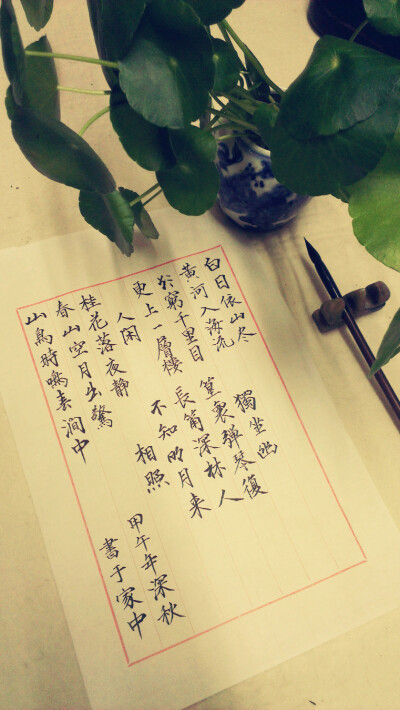 白日依山尽
黄河入海流
欲窮千里目
更上一層樓
獨坐幽
篁裏彈琴復
長嘯深林人
不知明月来
相照
人闲
桂花落夜静
春山空月出驚
山鳥時鳴春澗中
甲午年深秋
書于家中